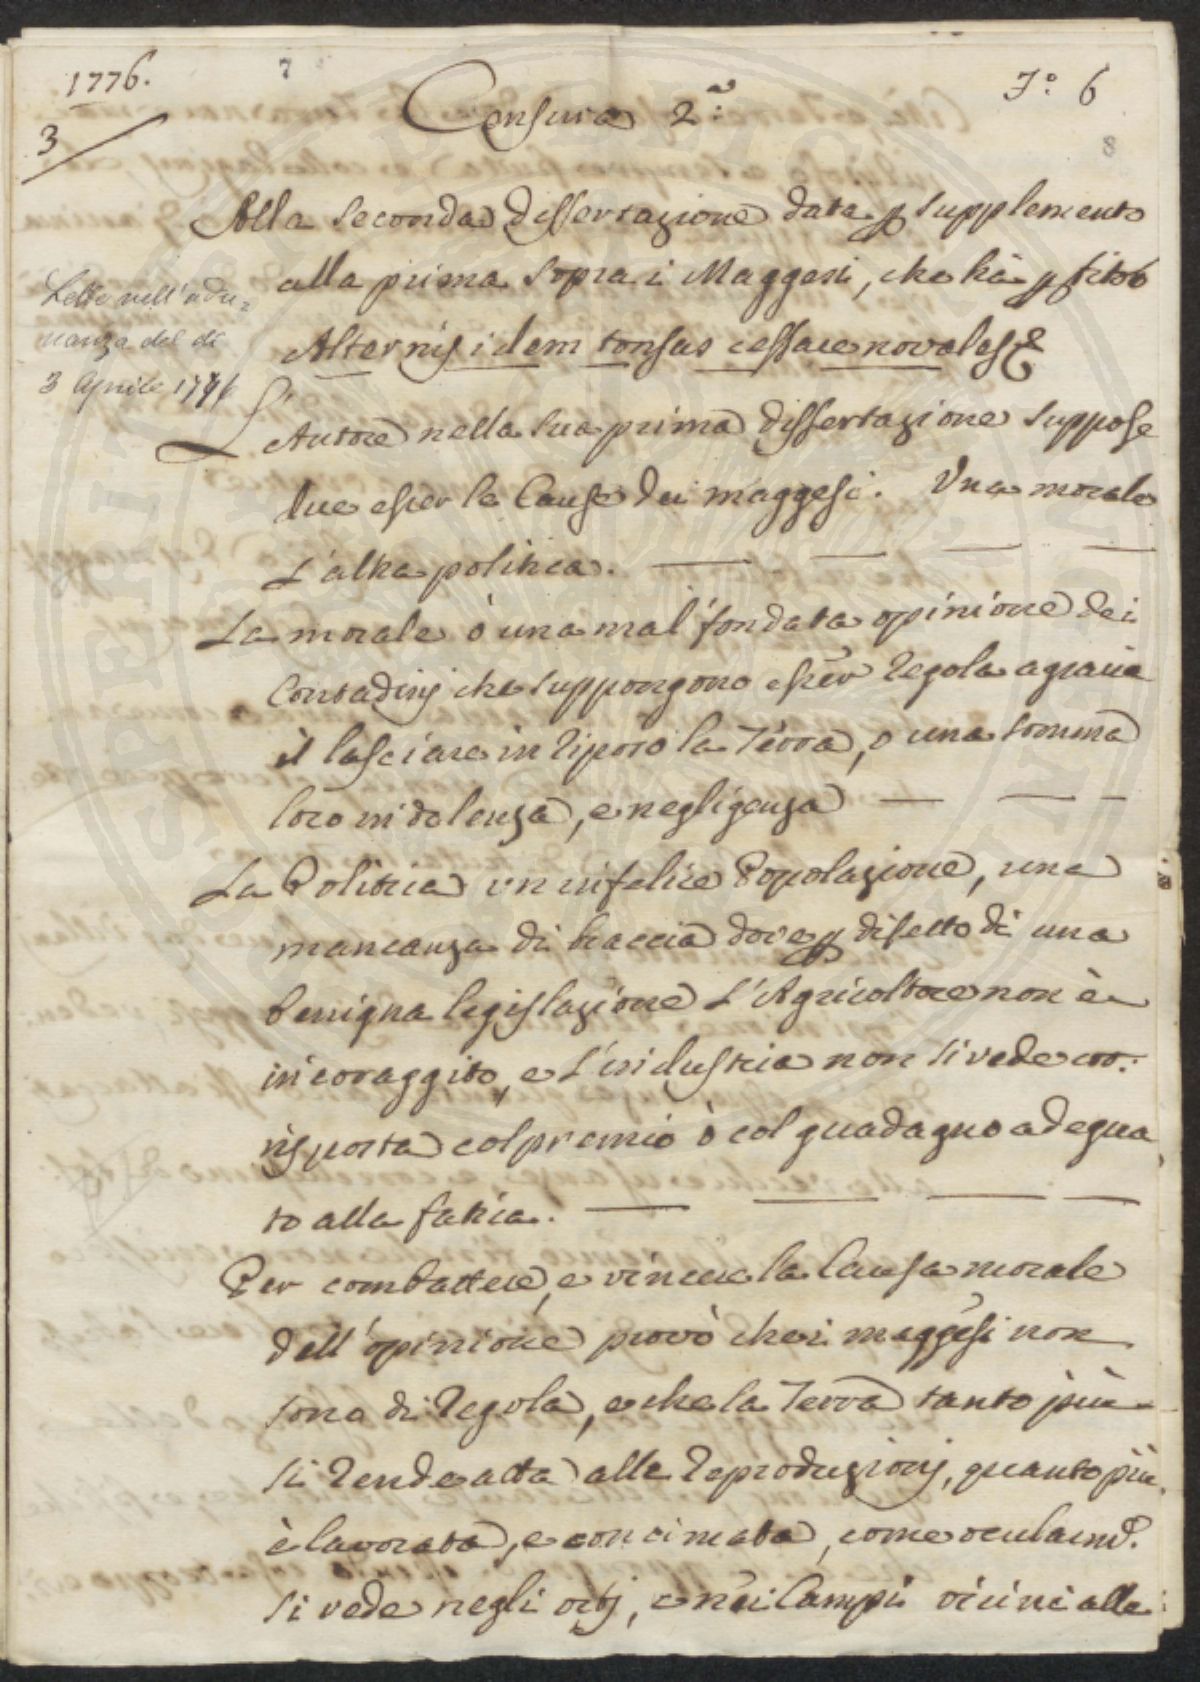 1776.
7
Jº: 6
3
Censura 2ª:
8
Alla seconda dissertazione data p supplemento
alla prima sopra i Maggesi, che hà p titolo
Alternis idem tonsas cessare novales &
Letto nell'adu=
nanza del dì
3 Aprile 1776
L'Autore nella sua prima dissertazione suppose
due esser le Cause dei maggesi. Una morale
L'altra politica.
La morale ò una mal' fondata opinione dei
Contadinj che suppongono esser regola agraria
il lasciare in riposo la Terra, o una somma
loro indolenza, e negligenza
La Politica un infelice Popolazione, una
mancanza di braccia dove p difetto di una
benigna legislazione L'Agricoltore non è
incoraggito, e L'industria non si vede cor:
risposta col premio ò col guadagno adegua
to alla fatica.
Per combattere, e vincere la Causa morale
dell'opinione provò che i maggesi non
sono di regola, e che la Terra tanto più
si rende atta alle reproduzionj, quanto più
è lavorata, e concimata, come ocularmᵉ.
si vede negli ortj, e nei Campi vicini alle